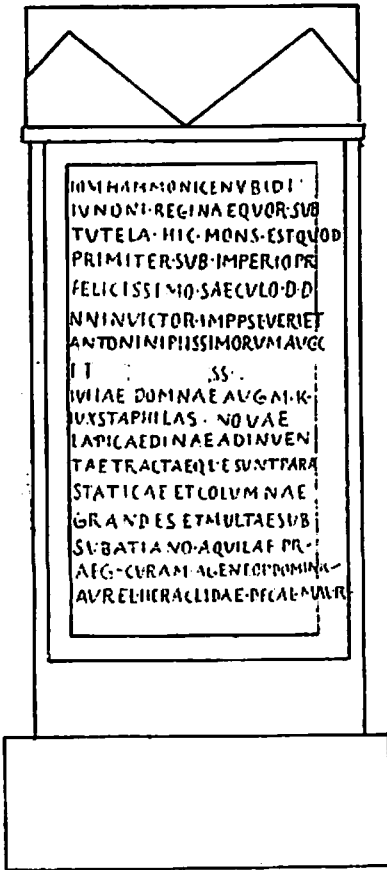 IOM HAMMONI CENVBIDI
IVNONI·REGINAEQVOR·SVB
TVTELA·HIC·MONS·ESTQVOD
PRIMITER·SVB·IMPERIO PR
FELICISSIMO·SAECVLO·D·D
NNINVICTOR·IMPPSEVERIET
ANTONINIPIISSIMORVMAVGG
SS·
IVLIAE DOMNAE AVG·M·K·
IVXSTAPHILAS·NOVAE
LAPICAEDINAEADINVEN
TAETRACTAEQVESVNTPARA
STATICAE ETCOLVMNAE
GRANDES ETMVLTAESVB
SVBATIANO·AQVILAE PR·
AEG·CVRAM AG·
AVREL·HERACLIDAE·